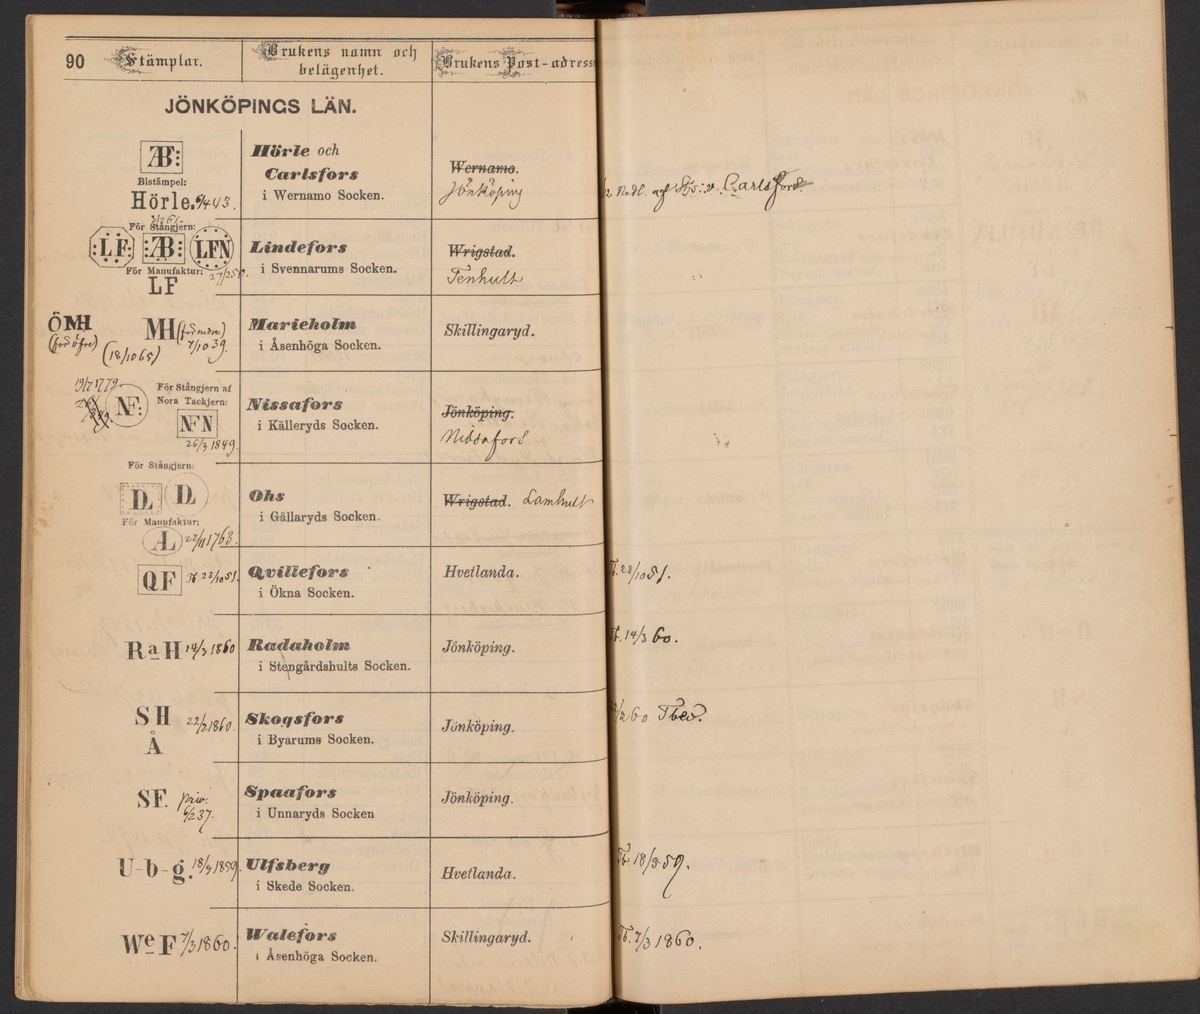 90 Stämplar.
Brukens namn och
belägenhet.
Brukens Post-adress
JÖNKÖPINGS LÄN.
Bistämpel:
Hörle.
Hörle och
Carlsfors
i Wernamo Socken.
Wernamo.
Jönköping
af Carlsfors.
För Stångjern:
LF LFN
För Manufaktur:
LF
Lindefors
i Svennarums Socken.
Wrigstad.
Tenhult
ÖMH
(för öfre)
MH (för nedre)
7/10 39.
(18/10 65)
Marieholm
i Åsenhöga Socken.
Skillingaryd.
19/7 1779.
NF:
För Stångjern af
Nora Tackjern:
NFN
26/3 1849.
Nissafors
i Källeryds Socken.
Jönköping.
Nissafors
För Stångjern:
DL DL
För Manufaktur:
22/11 1763.
Ohs
i Gällaryds Socken.
Wrigstad. Lamhult
QF Tb. 23/10 51.
Qvillefors
i Ökna Socken.
Hvetlanda.
Tb. 23/10 51.
RaH 14/3 1860
Radaholm
i Stengårdshults Socken.
Jönköping.
Tb. 14/3 60.
SH 22/2 1860.
Å
Skogsfors
i Byarums Socken.
Jönköping.
22/2 60
SF. priv.
6/2 37.
Spaafors
i Unnaryds Socken
Jönköping.
U-b-g. 18/3 1859.
Ulfsberg
i Skede Socken.
Hvetlanda.
Tb. 18/3 59.
WeF 7/3 1860.
Walefors
i Åsenhöga Socken.
Skillingaryd.
Tb. 7/3 1860.